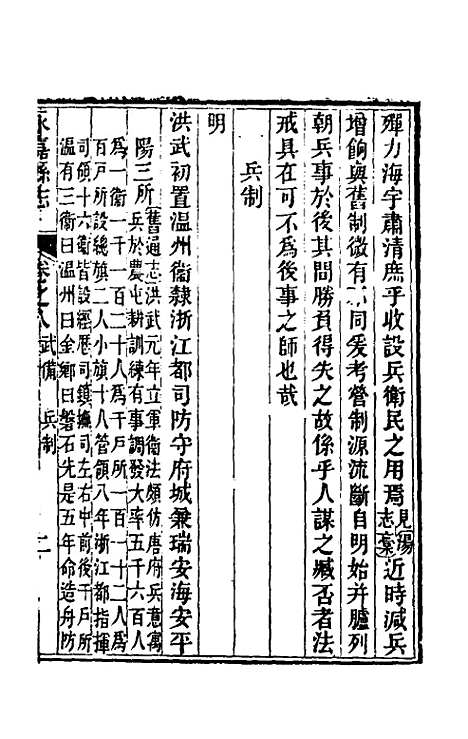 殫力海宇肅清庶乎收設兵衛民之用焉見湯志藳近時減兵
增餉與舊制微有不同爰考營制源流斷自明始并臚列
朝兵事於後其間勝負得失之故係乎人謀之臧否者法
戒具在可不為後事之師也哉
兵制
明
洪武初置温州衞隸浙江都司防守府城兼瑞安海安平
陽三所舊通志洪武元年立軍衛法頗仿唐府兵意寓
兵於農屯耕訓練有事調發大率五千六百人
為一衛一千一百二十人為千戶所一百一十二人為
百戶所設總旗二人小旗十人管領八年浙江都指揮
司領十六衛皆設經歷司鎮撫司左右中前後千戶所
温有三衛曰温州曰金鄉曰磐石先是五年命造舟防
永嘉縣志 卷之八 武備 兵制 二